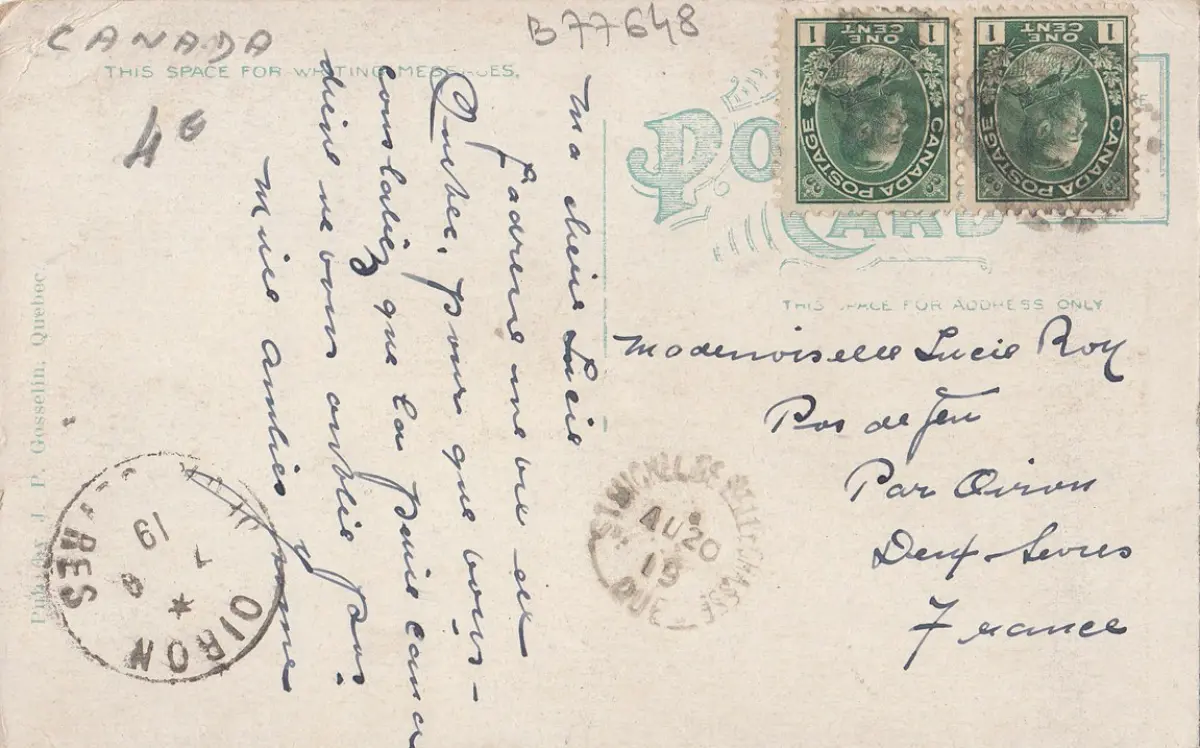 CANADA
B77648
4€
THIS SPACE FOR WRITING MESSAGES.
Ma chère Lucie
J'adresse une vue de
Québec, pour que vous
constatiez que la petite cana
dienne ne vous oublie pas.
Mille amitiés
POST CARD
1 ONE CENT 1
CANADA POSTAGE
1 ONE CENT 1
CANADA POSTAGE
THIS SPACE FOR ADDRESS ONLY
Mademoiselle Lucie Roy
Pas de Jeu
Par Oiron
Deux-Sèvres
France
ST MICHEL DE BELLECHASSE
AU 20
19
QUE
OIRON
19
Pub. by J. P. Gosselin, Quebec